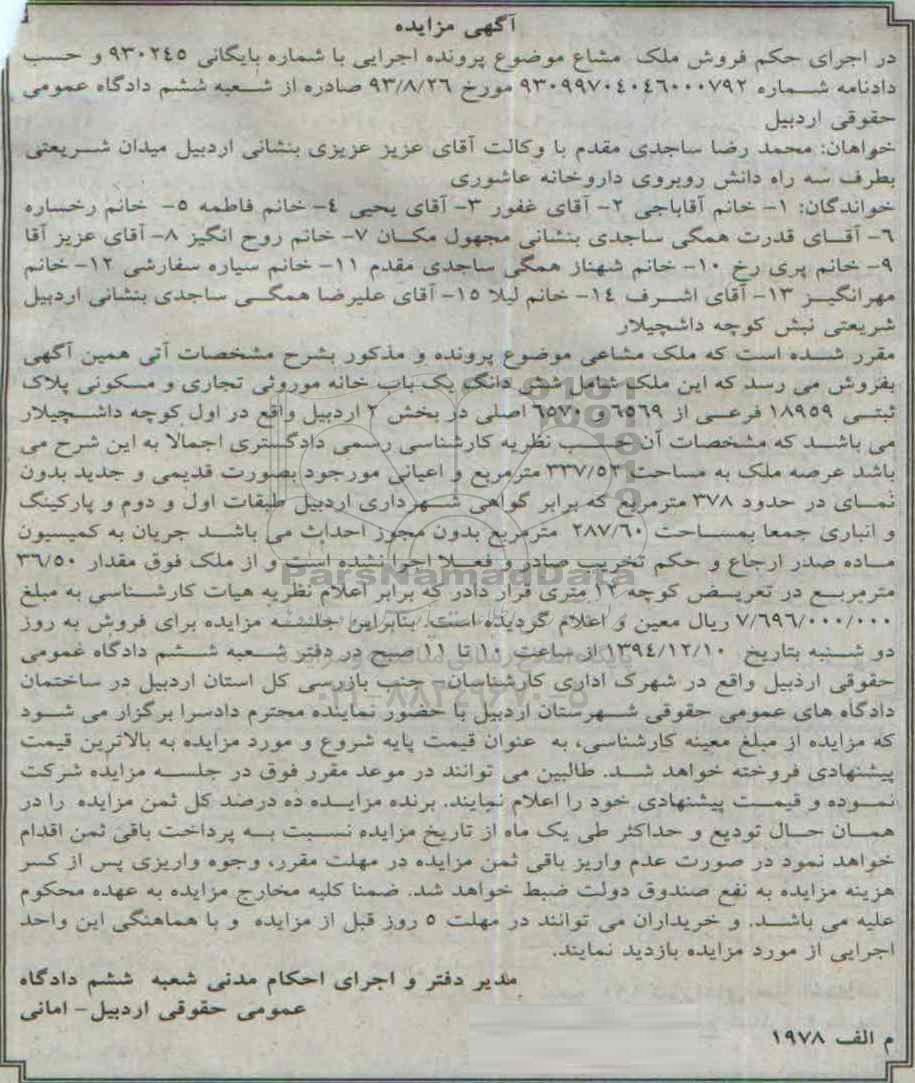 آگهی مزایده
در اجرای حکم فروش ملک مشاع موضوع پرونده اجرایی با شماره بایگانی ۹۳۰۲٤٥ و حسب
دادنامه شماره ۹۳۰۹۹۷۰٤۰٤٦۰۰۰۷۹۲ مورخ ۹۳/۸/۲٦ صادره از شعبه ششم دادگاه عمومی
حقوقی اردبیل
خواهان: محمد رضا ساجدی مقدم با وکالت آقای عزیز عزیزی بنشانی اردبیل میدان شریعتی
بطرف سه راه دانش روبروی داروخانه عاشوری
خواندگان: ۱- خانم آقاباجی ۲- آقای غفور ۳- آقای یحیی ٤- خانم فاطمه ٥- خانم رخساره
٦- آقای قدرت همگی ساجدی بنشانی مجهول مکان ۷- خانم روح انگیز ۸- آقای عزیز آقا
۹- خانم پری رخ ۱۰- خانم شهناز همگی ساجدی مقدم ۱۱- خانم سیاره سفارشی ۱۲- خانم
مهرانگیز ۱۳- آقای اشرف ۱٤- خانم لیلا ۱٥- آقای علیرضا همگی ساجدی بنشانی اردبیل
شریعتی نبش کوچه داشچیلار
مقرر شده است که ملک مشاعی موضوع پرونده و مذکور بشرح مشخصات آتی همین آگهی
بفروش می رسد که این ملک شامل شش دانگ یک باب خانه موروثی تجاری و مسکونی پلاک
ثبتی ۱۸۹٥۹ فرعی از ٦٥٦۹ و ٦٥۷۰ اصلی در بخش ۲ اردبیل واقع در اول کوچه داشچیلار
می باشد که مشخصات آن حسب نظریه کارشناسی رسمی دادگستری اجمالا به این شرح می
باشد عرصه ملک به مساحت ۳۳۷/٥۳ مترمربع و اعیانی مورجود بصورت قدیمی و جدید بدون
نمای در حدود ۳۷۸ مترمربع که برابر گواهی شهرداری اردبیل طبقات اول و دوم و پارکینگ
و انباری جمعا بمساحت ۲۸۷/٦۰ مترمربع بدون مجوز احداث می باشد جریان به کمیسیون
ماده صدر ارجاع و حکم تخریب صادر و فعلا اجرا نشده است و از ملک فوق مقدار ۳٦/٥۰
مترمربع در تعریض کوچه ۱۲ متری قرار دادر که برابر اعلام نظریه هیات کارشناسی به مبلغ
۷/٦۹٦/۰۰۰/۰۰۰ ریال معین و اعلام گردیده است. بنابراین جلسه مزایده برای فروش به روز
دو شنبه بتاریخ ۱۳۹٤/۱۲/۱۰ از ساعت ۱۰ تا ۱۱ صبح در دفتر شعبه ششم دادگاه عمومی
حقوقی اردبیل واقع در شهرک اداری کارشناسان- جنب بازرسی کل استان اردبیل در ساختمان
دادگاه های عمومی حقوقی شهرستان اردبیل با حضور نماینده محترم دادسرا برگزار می شود
که مزایده از مبلغ معینه کارشناسی، به عنوان قیمت پایه شروع و مورد مزایده به بالاترین قیمت
پیشنهادی فروخته خواهد شد. طالبین می توانند در موعد مقرر فوق در جلسه مزایده شرکت
نموده و قیمت پیشنهادی خود را اعلام نمایند. برنده مزایده ده درصد کل ثمن مزایده را در
همان حال تودیع و حداکثر طی یک ماه از تاریخ مزایده نسبت به پرداخت باقی ثمن اقدام
خواهد نمود در صورت عدم واریز باقی ثمن مزایده در مهلت مقرر، وجوه واریزی پس از کسر
هزینه مزایده به نفع صندوق دولت ضبط خواهد شد. ضمنا کلیه مخارج مزایده به عهده محکوم
علیه می باشد. و خریداران می توانند در مهلت ٥ روز قبل از مزایده و با هماهنگی این واحد
اجرایی از مورد مزایده بازدید نمایند.
مدیر دفتر و اجرای احکام مدنی شعبه ششم دادگاه
عمومی حقوقی اردبیل- امانی
م الف ۱۹۷۸
ParsNamadData